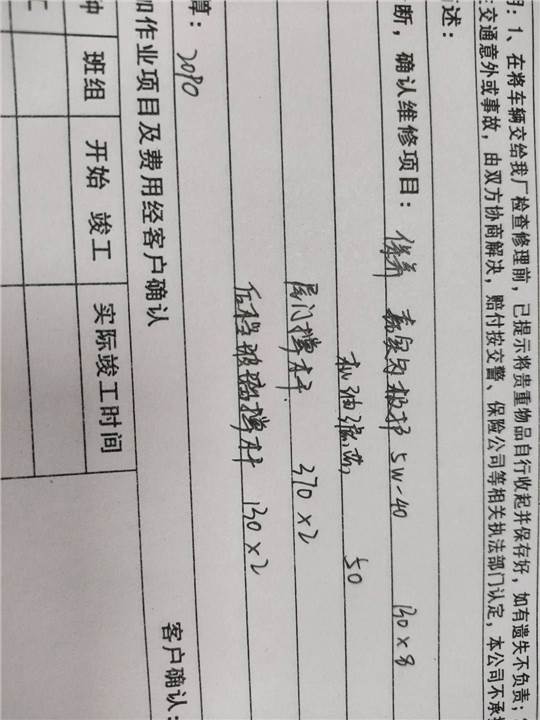 明：1、在将车辆交给我厂检查修理前，已提示将贵重物品自行收起并保存好，如有遗失不负责；
生交通意外或事故，由双方协商解决，赔付按交警、保险公司等相关执法部门认定，本公司不承
述：
断，确认维修项目：保养 嘉实多极护 5W-40 130×8
机油滤芯 50
尾门撑杆 370×2
后档玻璃撑杆 130×2
算：2090
加作业项目及费用经客户确认
客户确认：
种 班组 开始 竣工 实际竣工时间
工